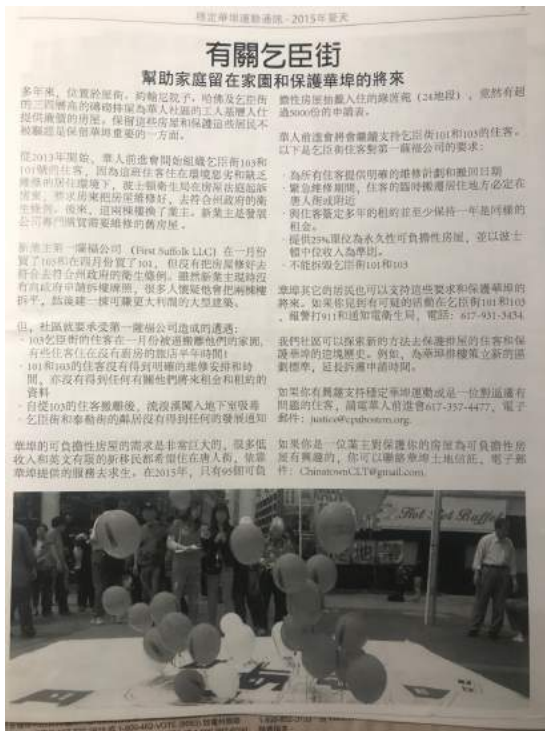 穩定華埠運動通訊 - 2015年夏天
有關乞臣街
幫助家庭留在家園和保護華埠的將來
多年來，位於夏街，約翰尼院子，哈佛及乞臣街
的三四層高的磚砌排屋為華人社區的工人基層人仕
提供廉價的房屋。保留這些房屋和保護這些居民不
被驅趕是保留華埠重要的一方面。
從2013年開始，華人前進會開始組織乞臣街103和
101號的住客，因為這班住客住在環境惡劣和缺乏
維修的居住環境下，波士頓衛生局在房屋法庭起訴
房東，要求房東把房屋維修好，去符合州政府的衛
生條例。後來，這兩棟樓換了業主。新業主是發展
公司專門購買需要維修的舊房屋。
新業主第一薩福公司 (First Suffolk LLC) 在一月份
買了103和在四月份買了101，但沒有把房屋修好去
符合去符合州政府的衛生條例。雖然新業主現時沒
有向政府申請拆樓牌照，很多人懷疑他會把兩棟樓
拆平，然後建一棟可賺更大利潤的大型建築。
但，社區就要承受第一薩福公司造成的遭遇：
· 103乞臣街的住客在一月份被逼搬離他們的家園，
有些住客住在沒有廚房的旅店半年時間!
· 101和103的住客沒有得到明確的維修安排和時
間，亦沒有得到任何有關他們將來租金和租約的
資料
· 自從103的住客搬離後，流浪漢闖入地下室吸毒
· 乞臣街和泰勤街的鄰居沒有得到任何的發展通知
華埠的可負擔性房屋的需求是非常巨大的，很多低
收入和英文有限的新移民都希望住在唐人街，依靠
華埠提供的服務去求生。在2015年，只有95個可負
擔性房屋抽籤入住的綠茵苑 (24地段)，竟然有超
過5000份的申請表。
華人前進會將會繼續支持乞臣街101和103的住客。
以下是乞臣街住客對第一薩福公司的要求：
· 為所有住客提供明確的維修計劃和搬回日期
· 緊急維修期間，住客的臨時搬遷居住地方必定在
唐人街或附近
· 與住客簽定多年的租約並至少保持一年是同樣的
租金。
· 提供25%單位為永久性可負擔性房屋，並以波士
頓中位收入為準則。
· 不能拆毀乞臣街101和103
華埠其它的居民也可以支持這些要求和保護華埠的
將來。如果你見到有可疑的活動在乞臣街101和103
，報警打911和通知電衛生局，電話：617-931-3434.
我們社區可以探索新的方法去保護排屋的住客和保
護華埠的這塊歷史。例如，為華埠排樓策立新的區
劃標準，延長拆遷申請時間。
如果你有興趣支持穩定華埠運動或是一位對逼遷有
問題的住客，請電華人前進會617-357-4477，電子
郵件：justice@cpaboston.org.
如果你是一位業主對保護你的房屋為可負擔性房
屋有興趣的，你可以聯絡華埠土地信託，電子郵
件：ChinatownCLT@gmail.com.
Hot Pot Buffet